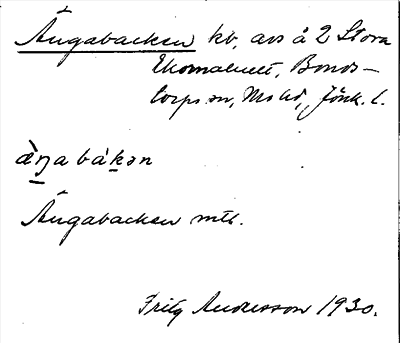 Ängabacken kb, avs å 2 Stora
Ekomalmet, Bonds-
torps sn, Mo hd, Jönk. l.
ὰŋabàkən
Ängabacken mtl.
Fritz Andersson 1930.